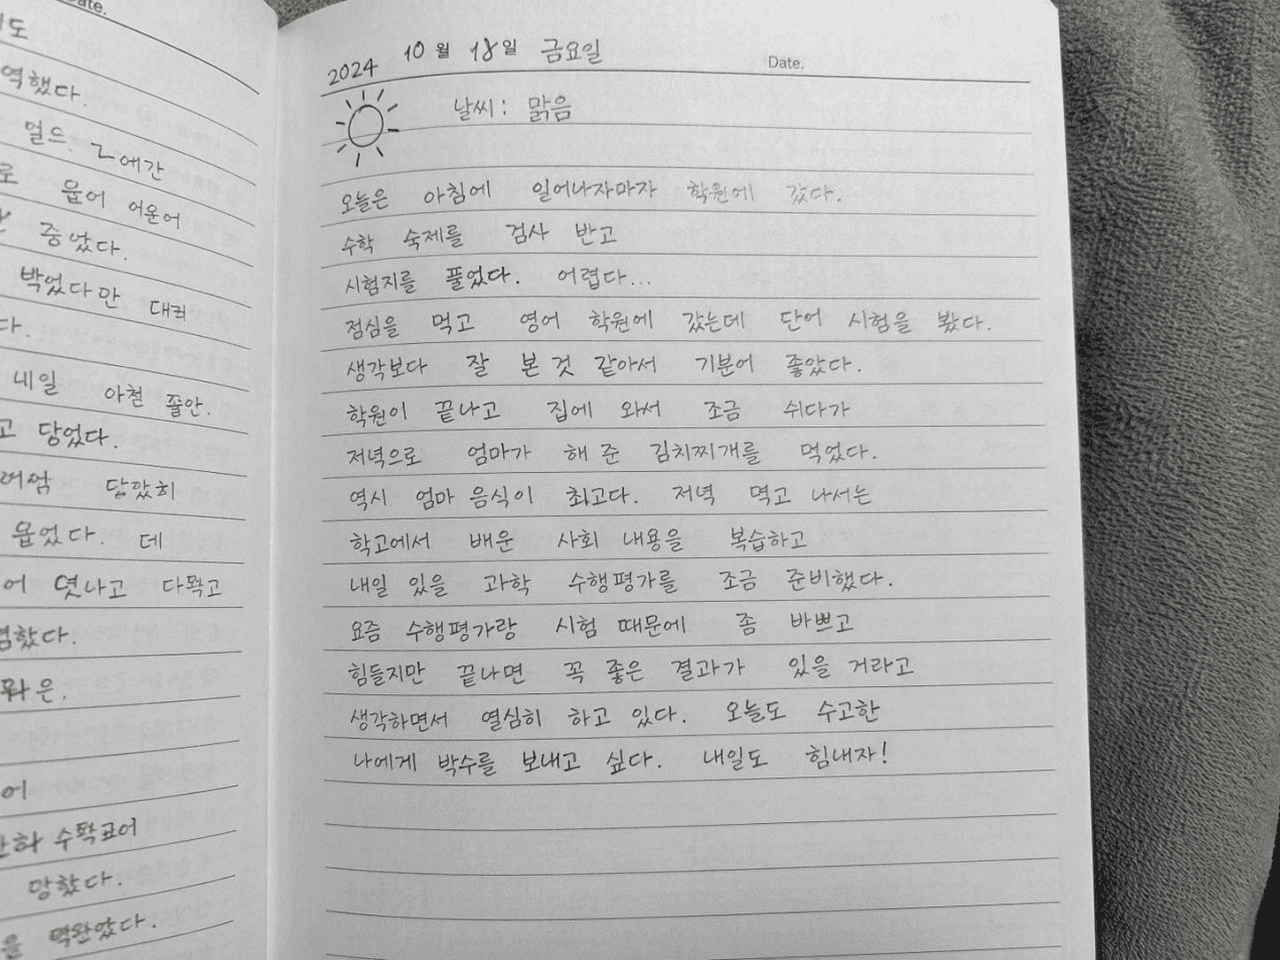 Date.
역했다.
얼드.
로 읍어 어운어
중었다.
박었다만 대쿼
다.
내일 아철 풀안.
고 당었다.
당깠히
읍었다. 데
어 엿나고
했다.
은.
어
망했다.
을
2024 10월 18일 금요일 Date.
날씨: 맑음
오늘은 아침에 일어나자마자 학원에 갔다.
수학 숙제를 검사 받고
시험지를 풀었다. 어렵다...
점심을 먹고 영어 학원에 갔는데 단어 시험을 봤다.
생각보다 잘 본 것 같아서 기분이 좋았다.
학원이 끝나고 집에 와서 조금 쉬다가
저녁으로 엄마가 해 준 김치찌개를 먹었다.
역시 엄마 음식이 최고다. 저녁 먹고 나서는
학교에서 배운 사회 내용을 복습하고
내일 있을 과학 수행평가를 조금 준비했다.
요즘 수행평가랑 시험 때문에 좀 바쁘고
힘들지만 끝나면 꼭 좋은 결과가 있을 거라고
생각하면서 열심히 하고 있다. 오늘도 수고한
나에게 박수를 보내고 싶다. 내일도 힘내자!